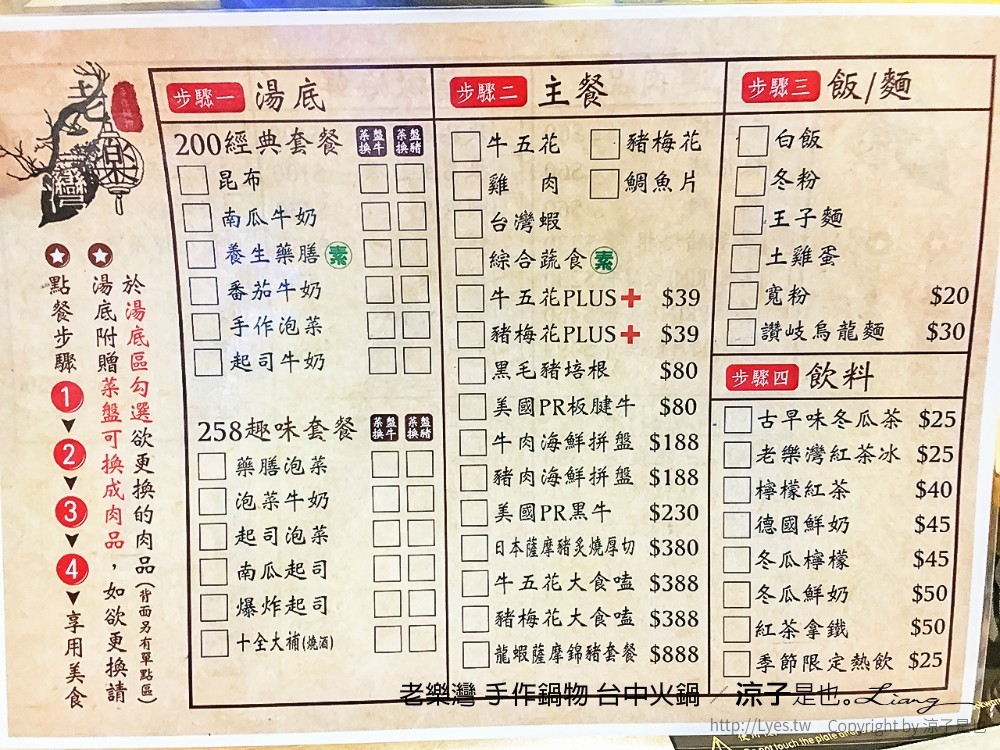 老樂灣
步驟一 湯底
200經典套餐 菜盤換牛 菜盤換豬
昆布
南瓜牛奶
養生藥膳 素
番茄牛奶
手作泡菜
起司牛奶
258趣味套餐 菜盤換牛 菜盤換豬
藥膳泡菜
泡菜牛奶
起司泡菜
南瓜起司
爆炸起司
十全大補(燒酒)
步驟二 主餐
牛五花 豬梅花
雞 肉 鯛魚片
台灣蝦
綜合蔬食 素
牛五花PLUS+ $39
豬梅花PLUS+ $39
黑毛豬培根 $80
美國PR板腱牛 $80
牛肉海鮮拼盤 $188
豬肉海鮮拼盤 $188
美國PR黑牛 $230
日本薩摩豬炙燒厚切 $380
牛五花大食嗑 $388
豬梅花大食嗑 $388
龍蝦薩摩錦豬套餐 $888
步驟三 飯/麵
白飯
冬粉
王子麵
土雞蛋
寬粉 $20
讚岐烏龍麵 $30
步驟四 飲料
古早味冬瓜茶 $25
老樂灣紅茶冰 $25
檸檬紅茶 $40
德國鮮奶 $45
冬瓜檸檬 $45
冬瓜鮮奶 $50
紅茶拿鐵 $50
季節限定熱飲 $25
湯底附贈菜盤可換成肉品，如欲更換請
於湯底區勾選欲更換的肉品(背面另有單點區)
點餐步驟 1 2 3 4 享用美食
老樂灣 手作鍋物 台中火鍋 / 涼子是也。Liang
http://Lyes.tw Copyright by 涼子是也
not touch the plate